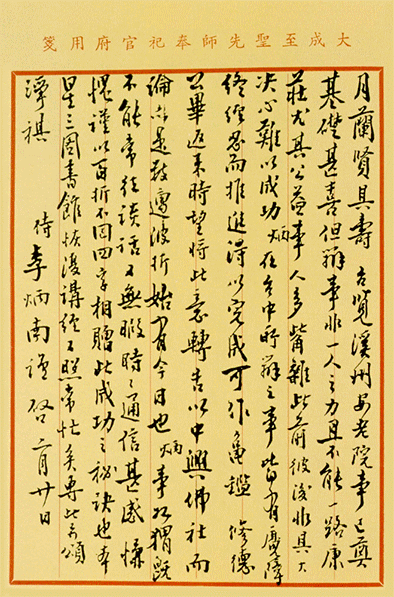 大成至聖先師奉祀官府用箋
月蘭賢具壽 台覽溪州安老院事已奠
基礎甚喜但辦事非一人之力且不能一路康
莊尤其公益事人多嘴雜此前彼後非具大
决心難以成功炳在台中所辦之事皆有魔障
終經忍而推進得以完成可作龜鑑 修德
公畢返來時望將此意轉告以中興佛社而
論亦是遭波折始有今日也炳事如猬既
不能常往談話又無暇時々通信甚感慊
愧謹以百折不回四字相贈此成功之秘訣也本
星三圖書館恢復講經又照常忙矣專此頌
潭祺
侍李炳南謹啓 二月廿日